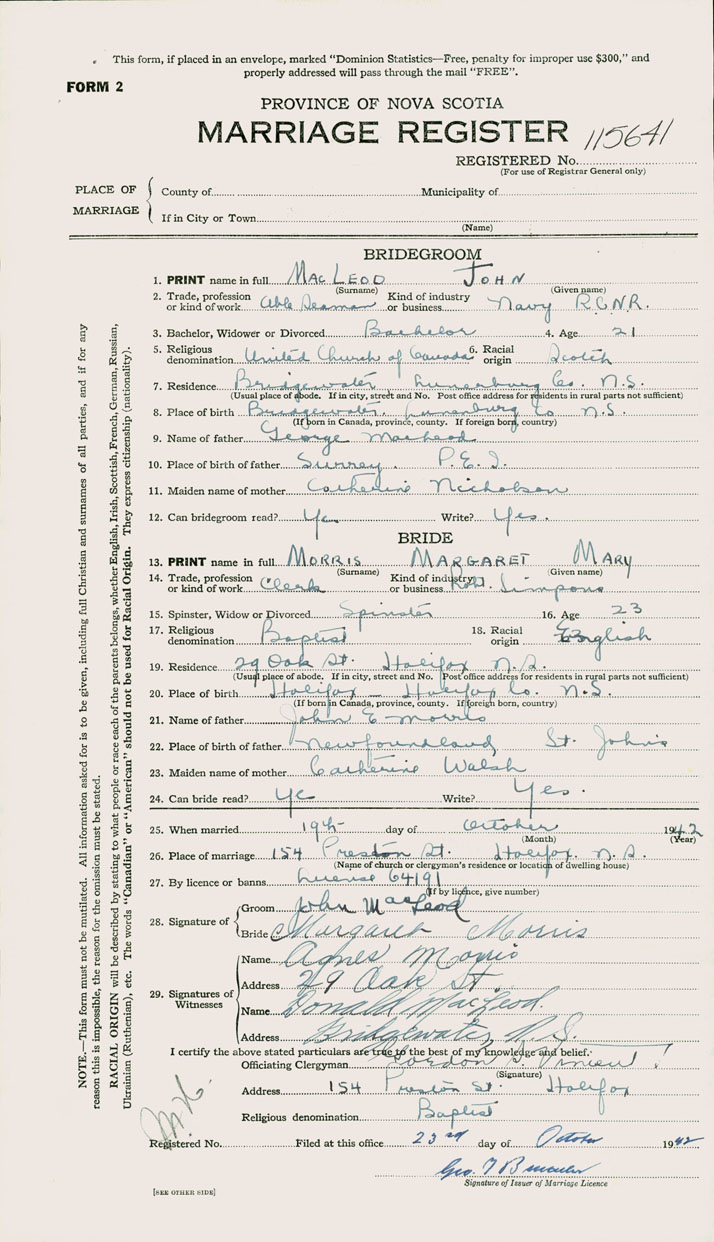 This form, if placed in an envelope, marked "Dominion Statistics—Free, penalty for improper use $300," and
properly addressed will pass through the mail "FREE".
FORM 2
PROVINCE OF NOVA SCOTIA
MARRIAGE REGISTER 115641
REGISTERED No.
(For use of Registrar General only)
PLACE OF MARRIAGE
County of Municipality of
If in City or Town
(Name)
BRIDEGROOM
1. PRINT name in full MacLeod John
(Surname) (Given name)
2. Trade, profession or kind of work Able Seaman Kind of industry or business Navy R.C.N.R.
3. Bachelor, Widower or Divorced Bachelor 4. Age 21
5. Religious denomination United Church of Canada 6. Racial origin Scotch
7. Residence Bridgewater Lunenburg Co. N.S.
(Usual place of abode. If in city, street and No. Post office address for residents in rural parts not sufficient)
8. Place of birth Bridgewater, Lunenburg Co N.S.
(If born in Canada, province, county. If foreign born, country)
9. Name of father George MacLeod
10. Place of birth of father Surrey. P.E.I.
11. Maiden name of mother Catherine Nicholson
12. Can bridegroom read? Yes Write? Yes.
BRIDE
13. PRINT name in full Morris Margaret Mary
(Surname) (Given name)
14. Trade, profession or kind of work Clerk Kind of industry or business Robt. Simpsons
15. Spinster, Widow or Divorced Spinster 16. Age 23
17. Religious denomination Baptist 18. Racial origin English
19. Residence 29 Oak St. Halifax N.S.
(Usual place of abode. If in city, street and No. Post office address for residents in rural parts not sufficient)
20. Place of birth Halifax – Halifax Co. N.S.
(If born in Canada, province, county. If foreign born, country)
21. Name of father John E Morris
22. Place of birth of father Newfoundland St. John's
23. Maiden name of mother Catherine Walsh
24. Can bride read? Ye Write? Yes.
25. When married 19th day of October 1942
(Month) (Year)
26. Place of marriage 154 Preston St. Halifax N.S.
(Name of church or clergyman's residence or location of dwelling house)
27. By licence or banns License 64191
(If by licence, give number)
28. Signature of
Groom John MacLeod
Bride Margaret Morris
29. Signatures of Witnesses
Name Agnes Morris
Address 29 Oak St.
Name Donald MacLeod.
Address Bridgewater, N.S.
I certify the above stated particulars are true to the best of my knowledge and belief.
Officiating Clergyman Gordon
(Signature)
Address 154 Preston St. Halifax
Religious denomination Baptist
Registered No. Filed at this office 23rd day of October 1942
Geo. T
Signature of Issuer of Marriage Licence
[SEE OTHER SIDE]
NOTE.—This form must not be mutilated. All information asked for is to be given, including full Christian and surnames of all parties, and if for any
reason this is impossible, the reason for the omission must be stated.
RACIAL ORIGIN will be described by stating to what people or race each of the parents belongs, whether English, Irish, Scottish, French, German, Russian,
Ukrainian (Ruthenian), etc. The words "Canadian" or "American" should not be used for Racial Origin. They express citizenship (nationality).